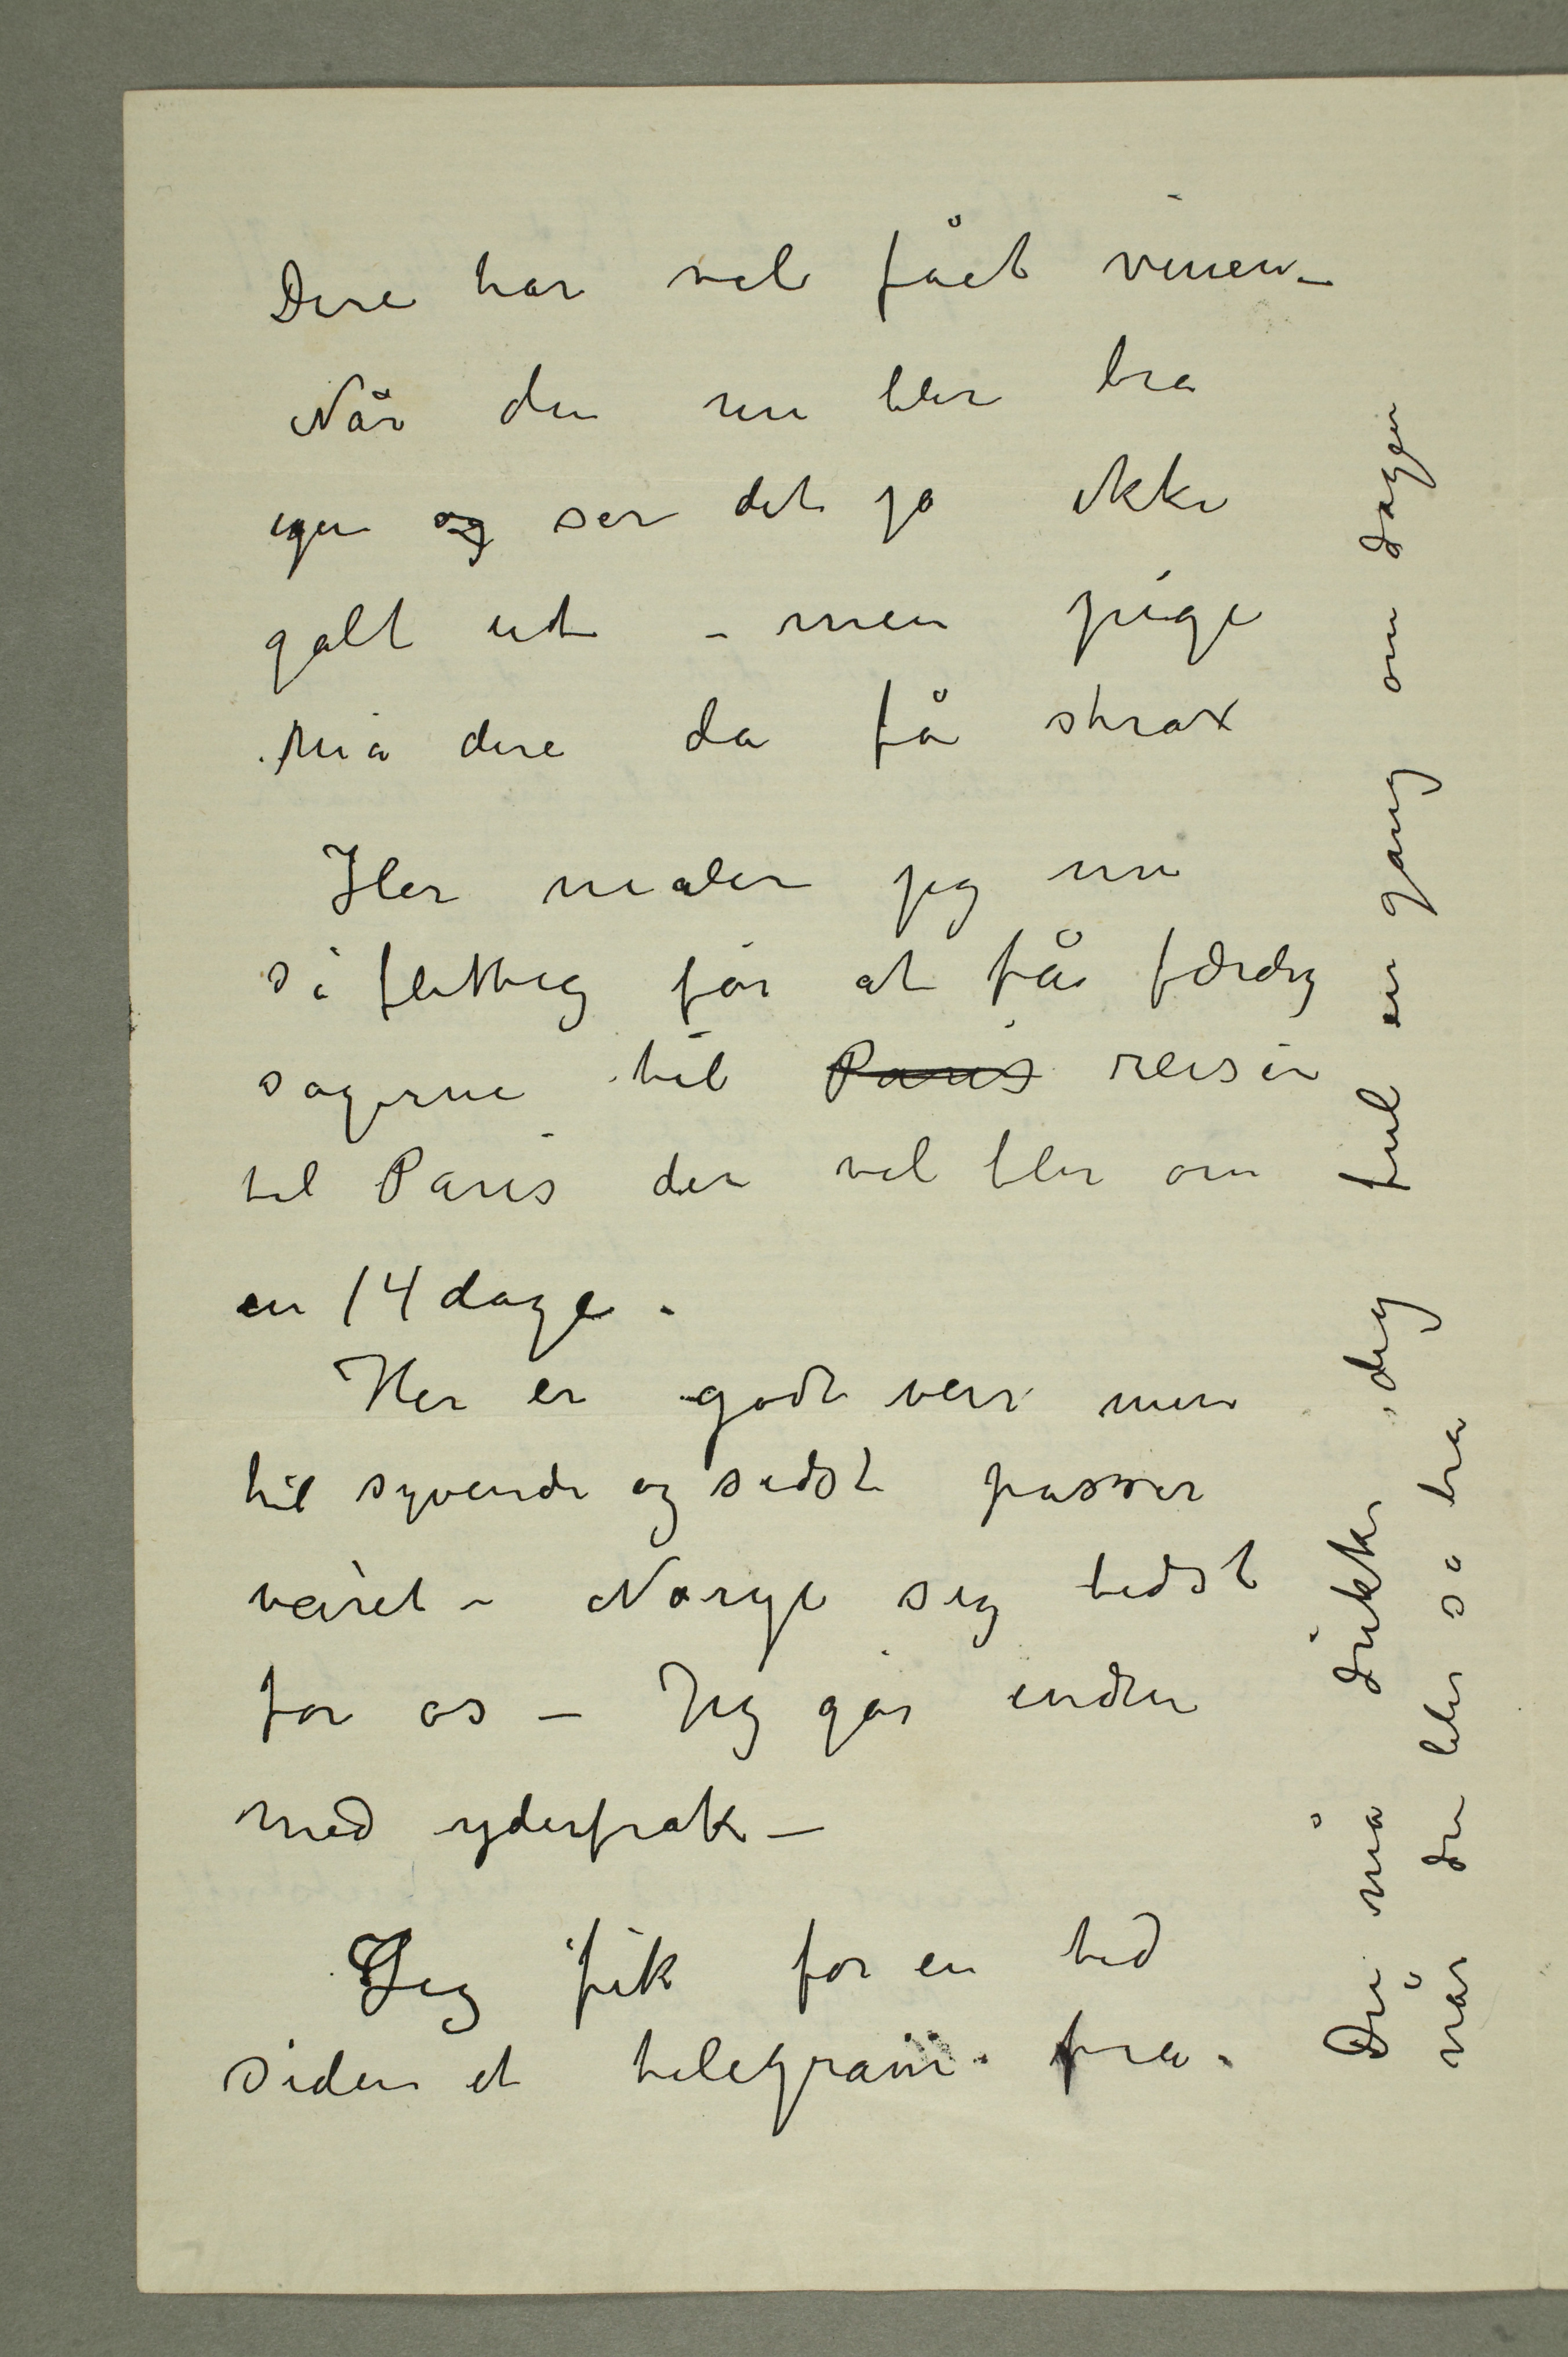 Dere har vel fået vinen –
Når du nu blir bra
igen og ser det jo ikke
galt ut – men pige
må dere da få strax
Her maler jeg nu
så flittig for at få færdig
sagerne til Paris reisen
til Paris der vel blir om
en 14 dage.
Her er godt veir men
til syvende og sidst passer
veiret – Norge sig bedst
for os – Jeg går endnu
med yderfrak –
Jeg fik for en tid
siden et telegram fra
Du må drikke dig ful en gang om dagen
når du blir så bra